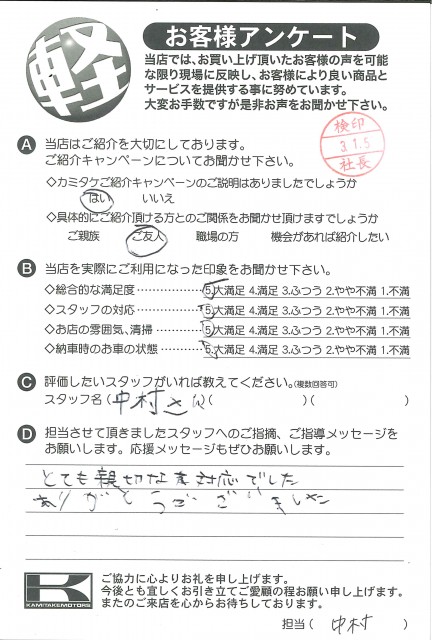 軽
お客様アンケート
当店では、お買い上げ頂いたお客様の声を可能
な限り現場に反映し、お客様により良い商品と
サービスを提供する事に努めています。
大変お手数ですが是非お声をお聞かせ下さい。
検印
3.1.5
社長
A 当店はご紹介を大切にしております。
ご紹介キャンペーンについてお聞かせ下さい。
◇カミタケご紹介キャンペーンのご説明はありましたでしょうか
はい いいえ
◇具体的にご紹介頂ける方とのご関係をお聞かせ頂けますでしょうか
ご親族 ご友人 職場の方 機会があれば紹介したい
B 当店を実際にご利用になった印象をお聞かせ下さい。
◇総合的な満足度……………5.大満足 4.満足 3.ふつう 2.やや不満 1.不満
◇スタッフの対応……………5.大満足 4.満足 3.ふつう 2.やや不満 1.不満
◇お店の雰囲気、清掃………5.大満足 4.満足 3.ふつう 2.やや不満 1.不満
◇納車時のお車の状態………5.大満足 4.満足 3.ふつう 2.やや不満 1.不満
C 評価したいスタッフがいれば教えてください。(複数回答可)
スタッフ名(中村さん)( )( )
D 担当させて頂きましたスタッフへのご指摘、ご指導メッセージを
お願いします。応援メッセージもぜひお願いします。
とても親切な対応でした
ありがとうございました
K
KAMITAKEMOTORS
ご協力に心よりお礼を申し上げます。
今後とも宜しくお引き立てご愛顧の程お願い申し上げます。
またのご来店を心からお待ちしております。
担当( 中村 )